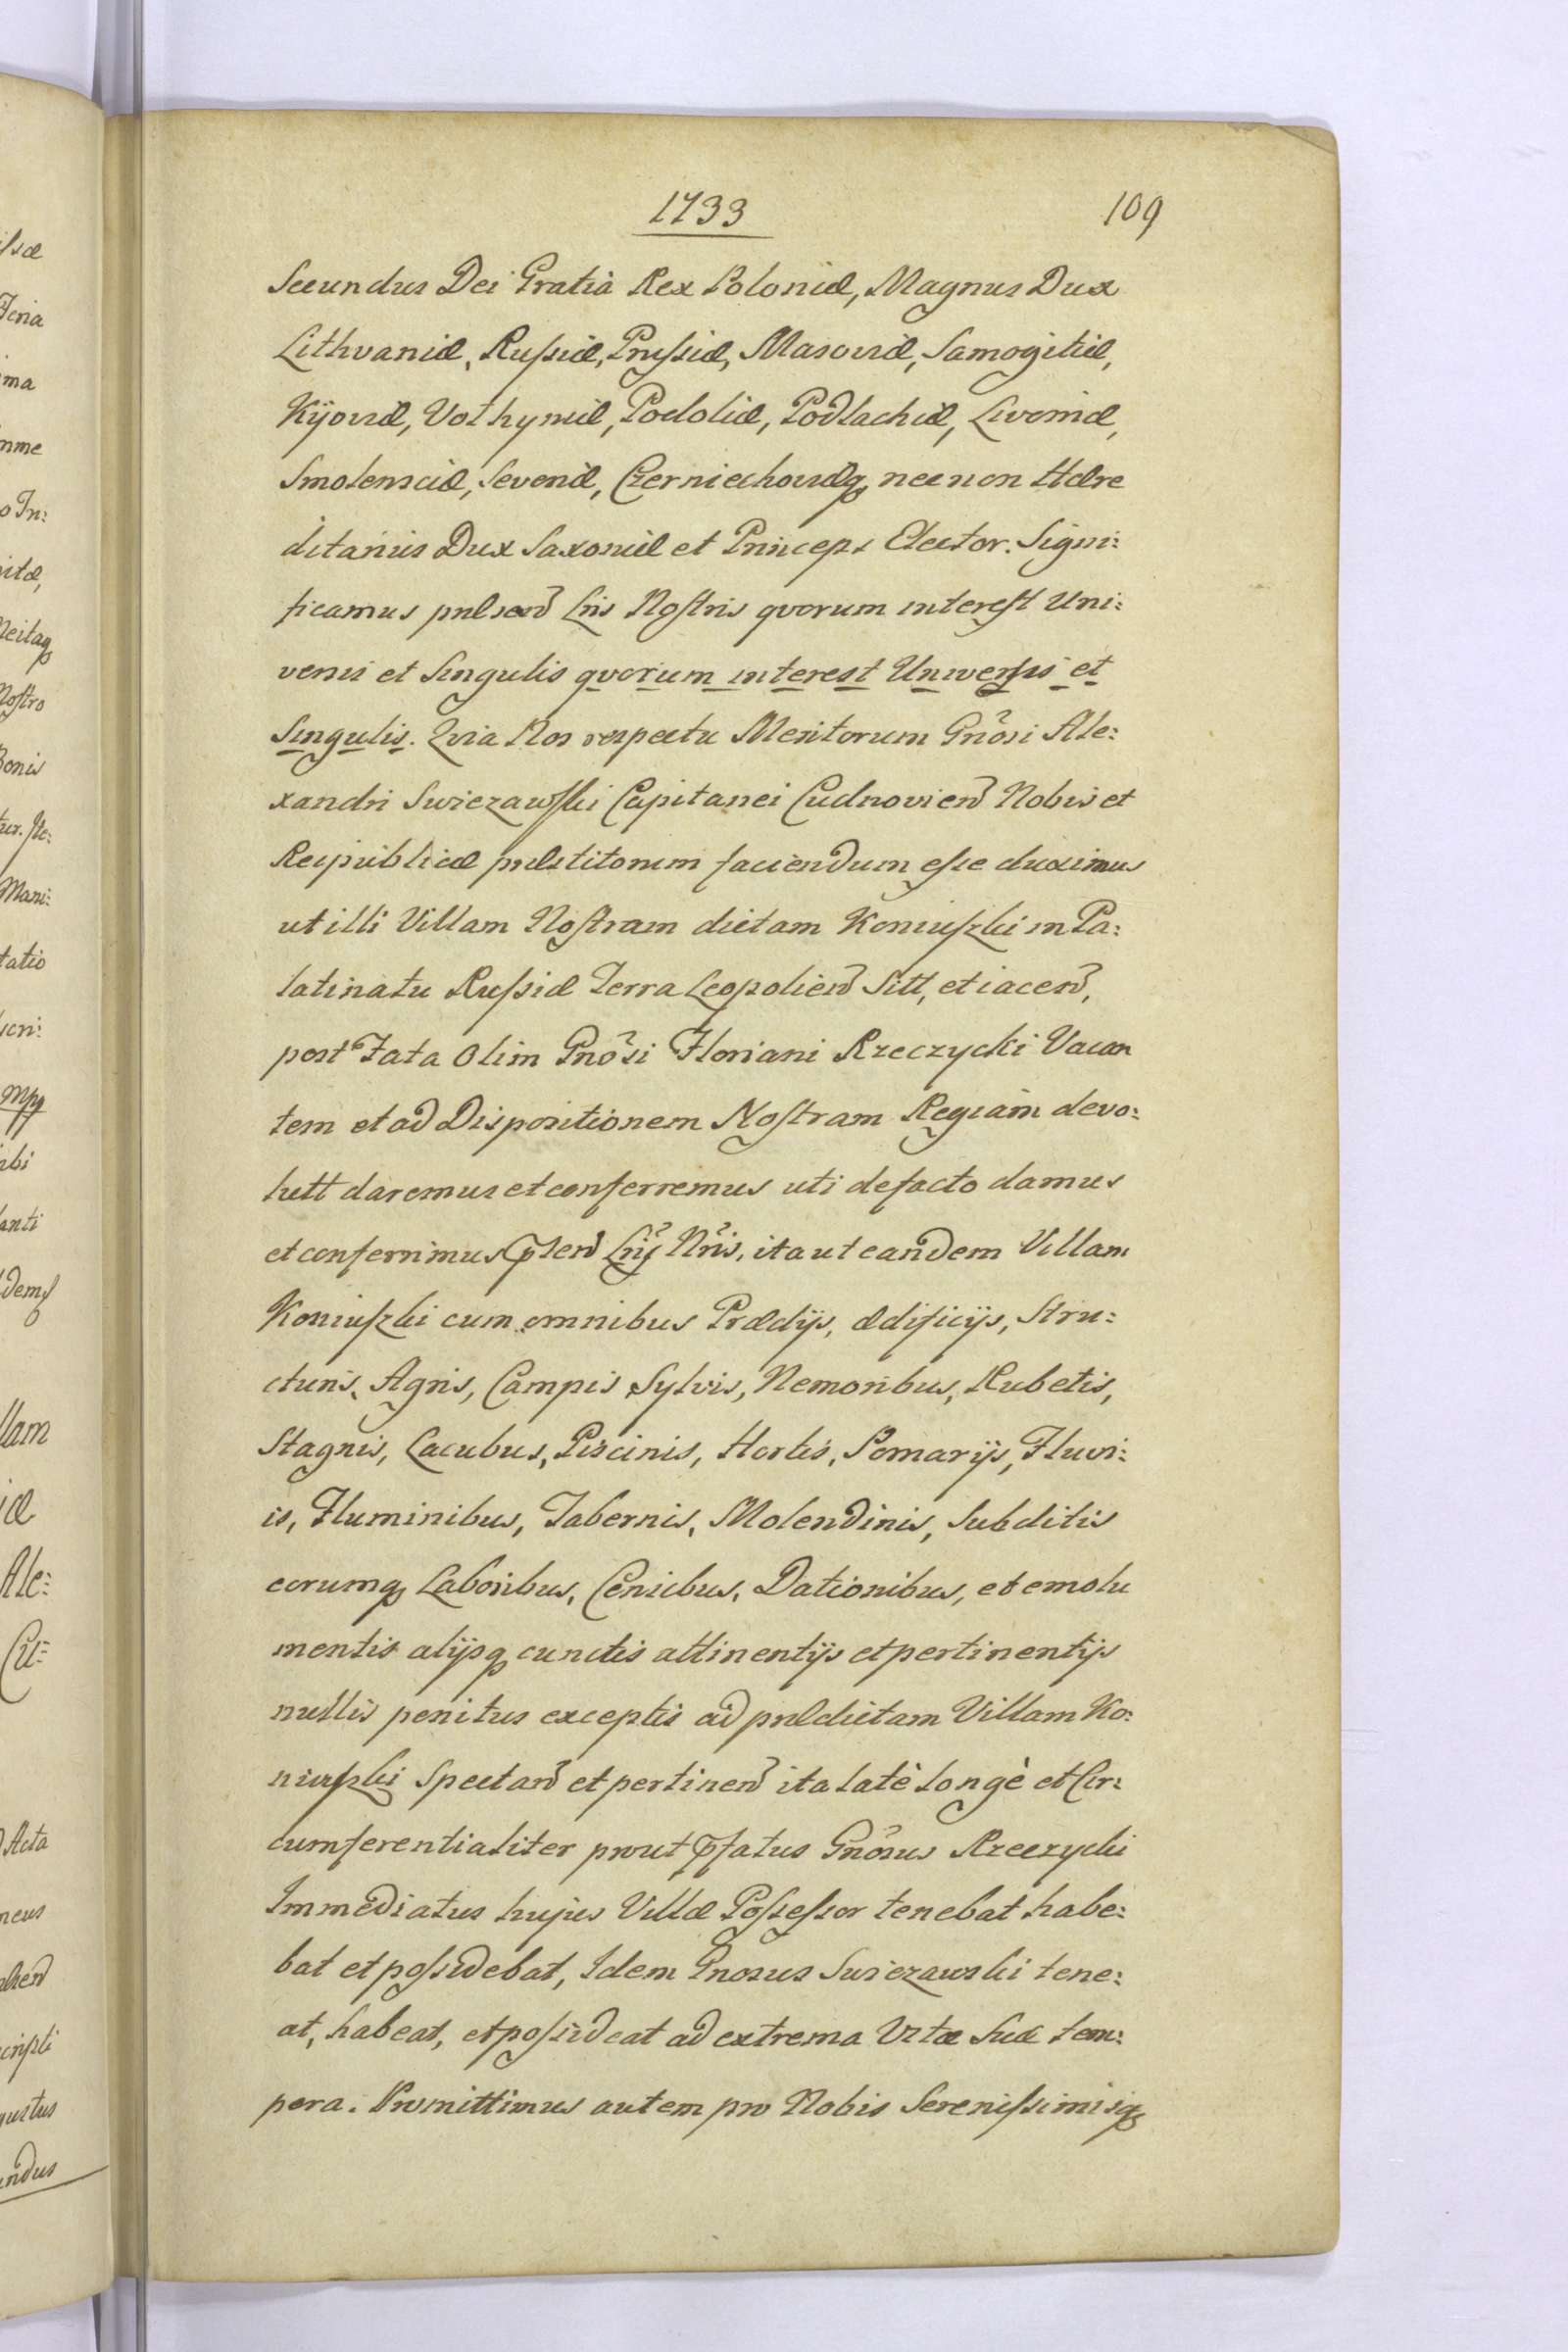 1733
109
Secundus Dei Gratià Rex Poloniæ, Magnus Dux
Lithvaniæ, Rufsiæ, Prufsiæ, Masoviæ, Samogitiæ,
Kÿoviæ, Volhyniæ, Podoliæ, Podlachiæ, Livoniæ,
Smolensciæ, Severiæ, Czerniechoviæq nec non Hære
ditarius Dux Saxoniæ et Princeps Elector. Signi:
ficamus præsen Lris Nostris qvorum interest Uni:
versis et Singulis qvorum interest Universis et
Singulis. Qvia Nos respectu Meritorum Gnosi Ale:
xandri Swiezawski Capitanei Cudnovien Nobis et
Reipublicæ præstitorum faciendum efse duximus
ut illi Villam Nostram dictam Koniuszki in Pa:
latinatu Rufsiæ Terra Leopolien Sitt, et iacen,
post Fata Olim Gnosi Floriani Rzeczycki Vacan
tem et ad Dispositionem Nostram Regiam devo:
lutt daremus et conferremus uti defacto damus
et conferrimus psen Lrij Nris, ita ut eandem Villam
Koniuszki cum omnibus Prædijs, ædificijs, Stru:
cturis, Agris, Campis Sylvis, Nemoribus, Rubetis,
Stagnis, Lacubus, Piscinis, Hortis, Pomarijs, Fluvi:
is, Fluminibus, Tabernis, Molendinis, Subditis
eorumq Laboribus, Censibus, Dationibus, et emolu
mentis alijsq cunctis attinentijs et pertinentijs
nullis penitus exceptis ad prædictam Villam Ko:
niuszki Spectan et pertinen ita latè longè et Cir:
cumferentialiter prout pfatus Gnosus Rzeczycki
Immediatus hujus Villæ Pofsefsor tenebat habe:
bat et pofsidebat, Idem Gnosus Swiezawski tene:
at, habeat, et pofsideat ad extrema Vitæ Suæ tem:
pora. Promittimus autem pro Nobis Serenifsimisq